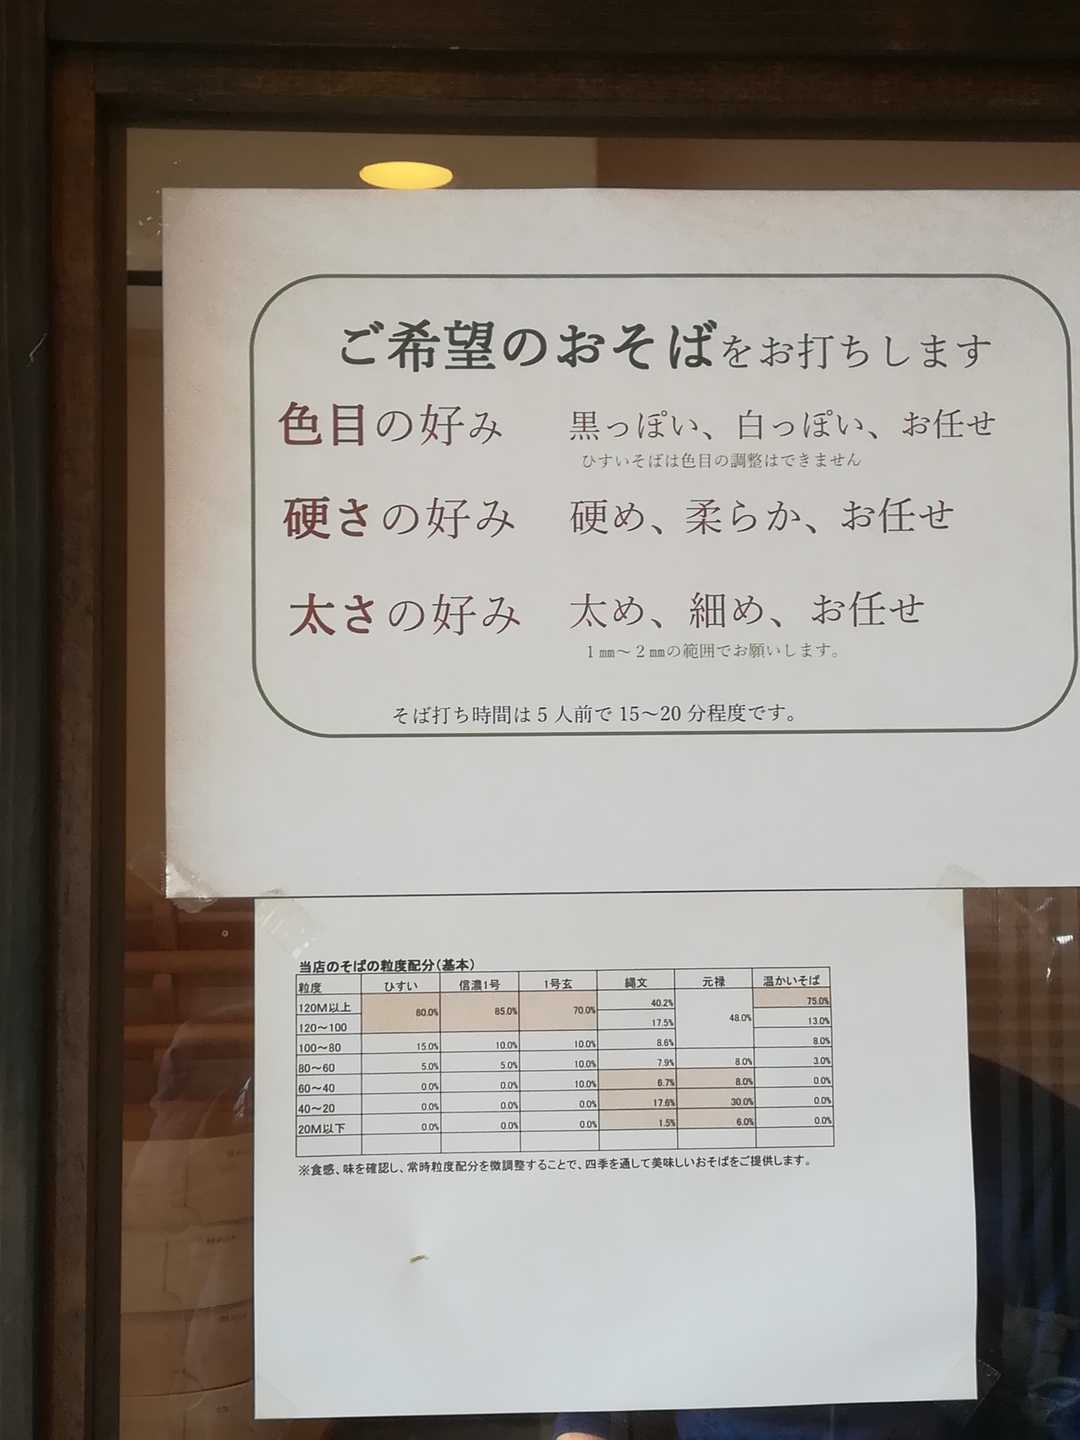 ご希望のおそばをお打ちします
色目の好み 黒っぽい、白っぽい、お任せ
ひすいそばは色目の調整はできません
硬さの好み 硬め、柔らか、お任せ
太さの好み 太め、細め、お任せ
1㎜～2㎜の範囲でお願いします。
そば打ち時間は5人前で15～20分程度です。
当店のそばの粒度配分(基本)
粒度 ひすい 信濃1号 1号玄 縄文 元禄 温かいそば
120M以上 80.0% 85.0% 70.0% 40.2% 48.0% 75.0%
120～100 17.5% 13.0%
100～80 15.0% 10.0% 10.0% 8.6% 8.0%
80～60 5.0% 5.0% 10.0% 7.9% 8.0% 3.0%
60～40 0.0% 0.0% 10.0% 6.7% 8.0% 0.0%
40～20 0.0% 0.0% 0.0% 17.6% 30.0% 0.0%
20M以下 0.0% 0.0% 0.0% 1.5% 6.0% 0.0%
※食感、味を確認し、常時粒度配分を微調整することで、四季を通して美味しいおそばをご提供します。